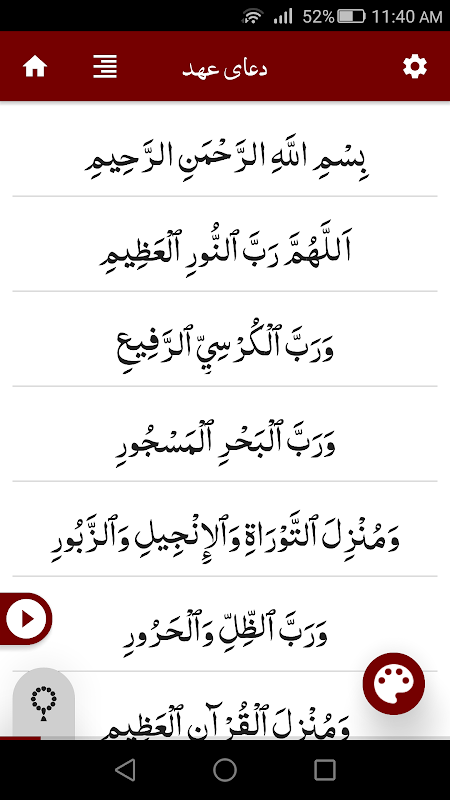 52% 11:40 AM
دعای عهد
بِسْمِ اللَّهِ الرَّحْمَنِ الرَّحِيمِ
اَللَّهُمَّ رَبَّ ٱلنُّورِ ٱلْعَظِيمِ
وَرَبَّ ٱلْكُرْسِيِّ ٱلرَّفِيعِ
وَرَبَّ ٱلْبَحْرِ ٱلْمَسْجُورِ
وَمُنْزِلَ ٱلتَّوْرَاةِ وَٱلإِنْجِيلِ وَٱلزَّبُورِ
وَرَبَّ ٱلظِّلِّ وَٱلْحَرُورِ
وَمُنْزِلَ ٱلْقُرْآنِ ٱلْعَظِيمِ